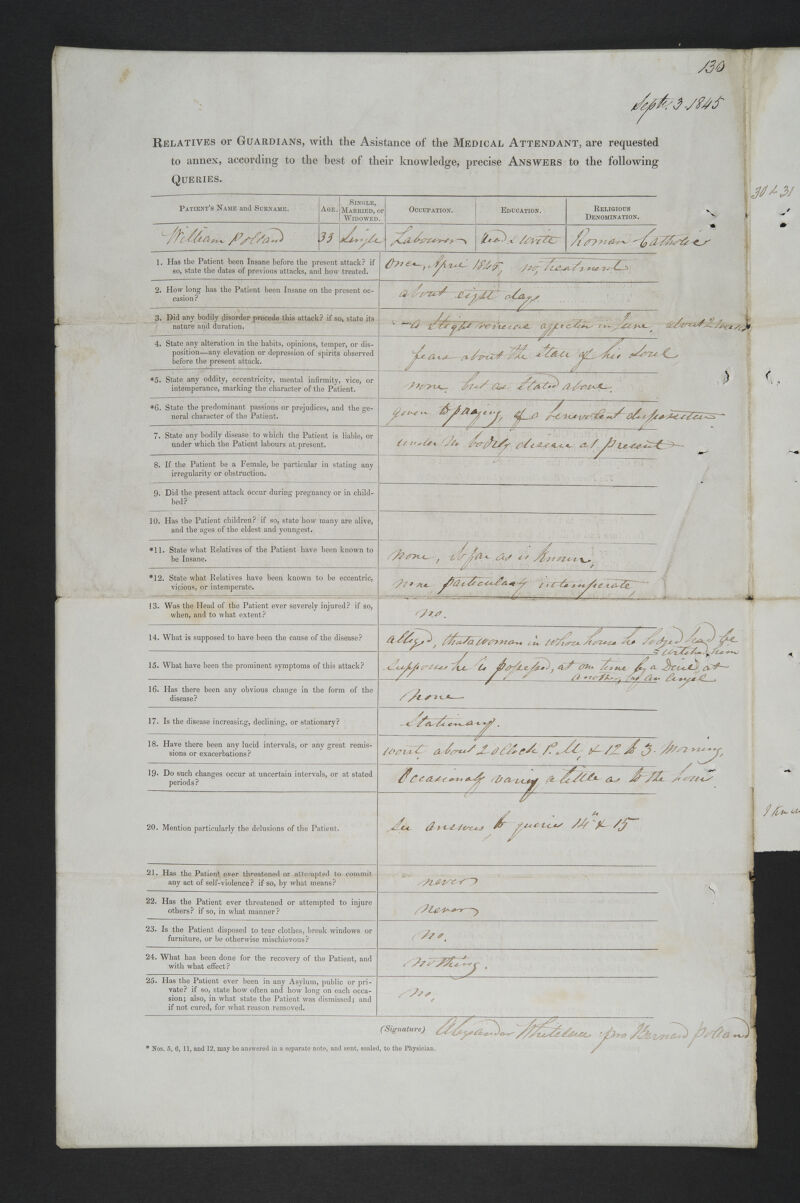 130
Septr. 3 1845
RELATIVES or GUARDIANS, with the Asistance of the MEDICAL ATTENDANT, are requested
to annex, according to the best of their knowledge, precise ANSWERS to the following
QUERIES.
30 & 31
PATIENT'S NAME and SURNAME. AGE. SINGLE, MARRIED, or WIDOWED. OCCUPATION. EDUCATION. RELIGIOUS DENOMINATION.
William Polland 33 Single Labourer Read & Write Roman Catholic
1. Has the Patient been Insane before the present attack? if
so, state the dates of previous attacks, and how treated.
Once, April 1845, no treatment
2. How long has the Patient been Insane on the present oc-
casion?
about eight days
3. Did any bodily disorder precede this attack? if so, state its
nature and duration.
a slight venereal affection in June, about 2 weeks
4. State any alteration in the habits, opinions, temper, or dis-
position—any elevation or depression of spirits observed
before the present attack.
fears about the state of his Soul
*5. State any oddity, eccentricity, mental infirmity, vice, or
intemperance, marking the character of the Patient.
none, but as Stated above.
*6. State the predominant passions or prejudices, and the ge-
neral character of the Patient.
given to praying, of a benevolent disposition
7. State any bodily disease to which the Patient is liable, or
under which the Patient labours at present.
under no bodily disease at present
8. If the Patient be a Female, be particular in stating any
irregularity or obstruction.
9. Did the present attack occur during pregnancy or in child-
bed?
10. Has the Patient children? if so, state how many are alive,
and the ages of the eldest and youngest.
*11. State what Relatives of the Patient have been known to
be Insane.
none, so far as is known,
*12. State what Relatives have been known to be eccentric,
vicious, or intemperate.
none particularly intemperate,
13. Was the Head of the Patient ever severely injured? if so,
when, and to what extent?
no.
14. What is supposed to have been the cause of the disease?
alleged, that a woman in whose house he lodged had be
=witched him
15. What have been the prominent symptoms of this attack?
Supposes he is possessed, at one time by a Devil, at
another, by an Angel
16. Has there been any obvious change in the form of the
disease?
None
17. Is the disease increasing, declining, or stationary?
Stationary.
18. Have there been any lucid intervals, or any great remis-
sions or exacerbations?
worst about 2 oClock P.M, & 12 to 3. Morning,
19. Do such changes occur at uncertain intervals, or at stated
periods?
Occasionaly varing a little as to the hour.
20. Mention particularly the delusions of the Patient.
See answers to queries 14th & 15
21. Has the Patient ever threatened or attempted to commit
any act of self-violence? if so, by what means?
never
22. Has the Patient ever threatened or attempted to injure
others? if so, in what manner?
Never
23. Is the Patient disposed to tear clothes, break windows or
furniture, or be otherwise mischievous?
No.
24. What has been done for the recovery of the Patient, and
with what effect?
nothing.
25. Has the Patient ever been in any Asylum, public or pri-
vate? if so, state how often and how long on each occa-
sion; also, in what state the Patient was dismissed; and
if not cured, for what reason removed.
No.
(Signature) Alexander Whitelaw pro Bernard Polland
* Nos. 5, 6, 11, and 12, may be answered in a separate note, and sent, sealed, to the Physician.